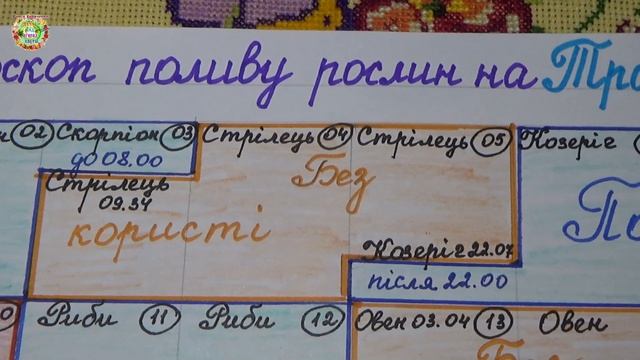 поливу рослин на
02 Скорпіон 03 Стрілець 04 Стрілець 05 Козеріг
до 08.00
Без
Стрілець
09.34
користі
Козеріг 22.07
після 22.00
Риби 11 Риби 12 Овен 03.04 13 Овен